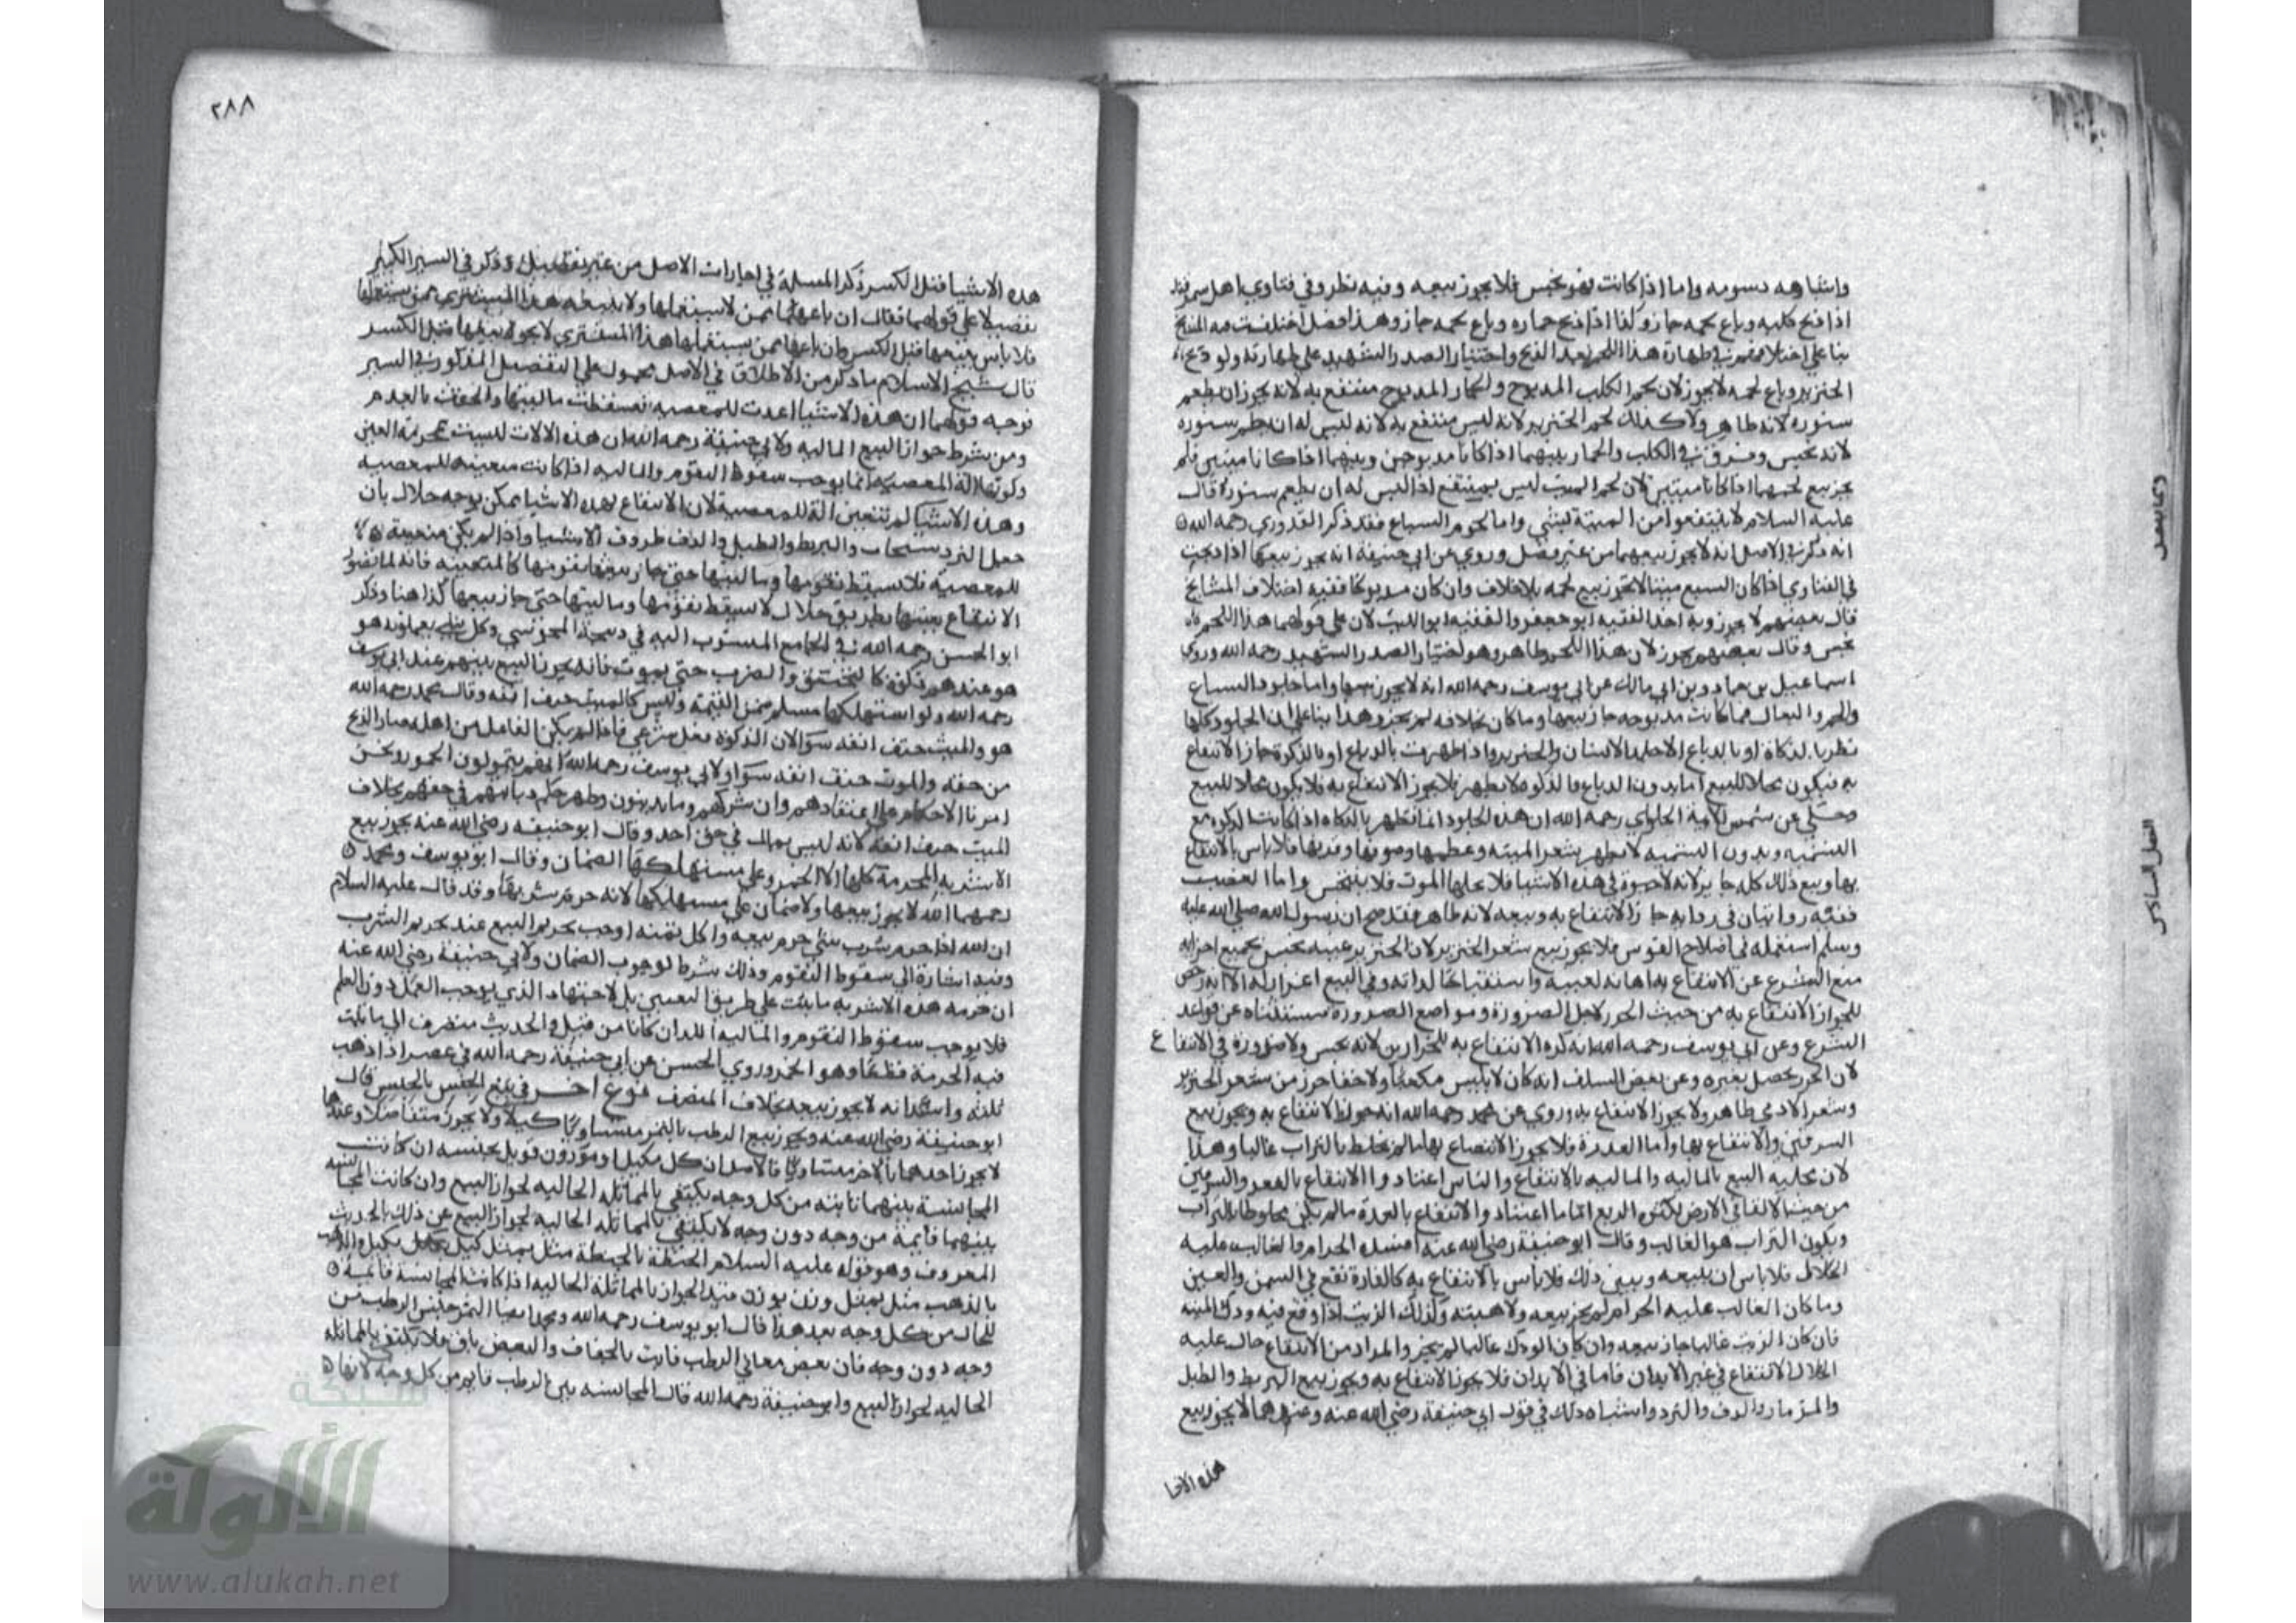 واشباهه دسومه واما اذا كانت فهو نجس فلا يجوز بيعه وفيه نظر وفي فتاوي اهل سمرقند
اذا ذبح كلبه وباع لحمه جاز وكذا اذا ذبح حماره وباع لحمه جاز وهذا فصل اختلفت فيه المشايخ
بنا على اختلافهم في طهارة هذا اللحم بعد الذبح واختيار الصدر الشهيد على طهارته ولو ذبح
الخنزير وباع لحمه لا يجوز لان لحم الكلب المذبوح والحمار المذبوح منتفع به لانه يجوز ان يطعم
سنوره لانه طاهر ولا كذلك لحم الخنزير لانه ليس منتفع به لانه ليس له ان يطعم سنوره
لانه نجس وفرق في الكلب والحمار بينهما اذا كانا مذبوحين وبينهما اذا كانا ميتين فلم
يجز بيع لحمهما اذا كانا ميتين لان لحم الميت ليس بمنتفع اذ ليس له ان يطعم سنوره قال
عليه السلام لا ينتفعوا من الميتة بشي واما لحوم السباع فقد ذكر القدوري رحمه الله
انه ذكر في الاصل انه لا يجوز بيعهما من غير فصل وروي عن ابي حنيفة انه يجوز بيعها اذا ذبحت
في الفتاوي اذا كان السبع ميتا لا يجوز بيع لحمه بلا خلاف وان كان مذبوحا ففيه اختلاف المشايخ
قال بعضهم لا يجوز وبه اخذ الفقيه ابو جعفر والفقيه ابو الليث لان على قولهما هذا اللحم
نجس وقال بعضهم يجوز لان هذا اللحم طاهر وهو اختيار الصدر الشهيد رحمه الله وروى
اسماعيل بن حماد وبن ابي مالك عن ابي يوسف رحمه الله انه لا يجوز بيعها واما جلود السباع
والحمر والبغال فما كانت مدبوغه جاز بيعها وما كان بخلافه لم يجز وهذا بنا على ان الجلود كلها
تطهر بالذكاة او بالدباغ الا جلد الانسان والخنزير واذا طهرت بالدباغ او بالذكوة جاز الانتفاع
به فيكون محلا للبيع اما بدون الدباغ والذكوة لا تطهر فلا يجوز الانتفاع به فلا يكون محلا للبيع
وحكي عن شمس الايمة الحلواي رحمه الله ان هذه الجلود انما تطهر بالذكاه اذا كانت الذكوة مع
التسميه وبدون التسميه لا تطهر شعر الميته وعظمها وصوفها وقرنها فلا باس بالانتفاع
بها وبيع ذلك كله جايز لانه لا حيوة في هذه الاشيا فلا يحلها الموت فلا يتنجس واما العصب
ففيه روايتان في روايه جاز الانتفاع به وبيعه لانه طاهر فقد صح ان رسول الله صلى الله عليه
وسلم استعمله في اصلاح القوس فلا يجوز بيع شعر الخنزير لان الخنزير عينه نجس بجميع اجزايه
منع الشرع عن الانتفاع به اهانه لعينه واستقباحا لذاته وفي البيع اعزاز له الا انه رخص
للجواز الانتفاع به من حيث الخرز لاجل الضرورة ومواضع الضرورة مستثناه عن قواعد
الشرع وعن ابي يوسف رحمه الله انه كره الانتفاع به للخرازين لانه نجس ولا ضرورة في الانتفاع
لان الخرز يحصل بغيره وعن بعض السلف انه كان لا يلبس مكعبا ولا خفا خرز من شعر الخنزير
وشعر الادمي طاهر ولا يجوز الانتفاع به وروي عن محمد رحمه الله انه جوز الانتفاع به ويجوز بيع
السرقين والانتفاع بها واما العذرة فلا يجوز الانتفاع بها ما لم تخلط بالتراب غالبا وهذا
لان محليه البيع بالماليه والماليه بالانتفاع والناس اعتادوا الانتفاع بالبعر والسرقين
من حيث الالقا في الارض لكثره الريع اما ما اعتادوا الانتفاع بالعذرة ما لم يكن مخلوطا بالتراب
ويكون التراب هو الغالب وقال ابو حنيفة رضي الله عنه افسده الحرام والغالب عليه
الحلال فلا باس ان يبيعه ويبين ذلك فلا باس بالانتفاع به كالفارة تقع في السمن والعجين
وما كان الغالب عليه الحرام لم يجز بيعه ولا هبته وكذلك الزيت اذا وقع فيه ودك الميته
فان كان الزيت غالبا جاز بيعه وان كان الودك غالبا لم يجز والمراد من الانتفاع حال عليه
الحلال الانتفاع في غير الابدان فاما في الابدان فلا يجوز الانتفاع به ويجوز بيع البربط والطبل
والمزمار والدف والنرد واشباه ذلك في قول ابي حنيفة رضي الله عنه وعندهما لا يجوز بيع
هذه الاشيا
٢٨٨
هذه الاشيا قبل الكسر ذكر المسلة في اجارات الاصل من غير تفصيل وذكر في السير الكبير
تفصيلا على قولهما فقال ان باعها ممن لا يستعملها ولا يبيعه هذا المشتري ممن يستعملها
فلا باس ببيعها قبل الكسر وان باعها ممن يستعملها هذا المشتري لا يجوز بيعها قبل الكسر
قال شيخ الاسلام ما ذكر من الاطلاق في الاصل محمول على التفصيل المذكور في السير
توجيه قولهما ان هذه الاشيا اعدت للمعصيه فسقطت ماليتها والحقت بالعدم
ومن شرط جواز البيع الماليه ولابي حنيفة رحمه الله ان هذه الالات ليست بمحرمة العين
وكونها الة المعصيه انما يوجب سقوط التقوم والماليه اذا كانت متعينه للمعصيه
وهذه الاشيا لم تتعين الة للمعصية لان الانتفاع بهذه الاشيا ممكن بوجه حلال بان
جعل النرد سنجات والبربط والطبل والدف ظروف الاشيا واذا لم يكن متعينة
للمعصية فلا تسقط تقومها وماليتها حتى جاز بيعها
الانتفاع بعينها بطريق حلال لا يسقط تقومها وماليتها حتى جاز بيعها كذا هنا وذكر
ابو الحسن رحمه الله في الجامع المنسوب اليه في ذبيحة المجوسي وكل شي يعملونه هو
هو عندهم ذكوة كالخنق والضرب حتى يموت فانه يجوز البيع بينهم عند ابي يوسف
رحمه الله ولو استهلكها مسلم ضمن القيمة وليس كالميت حتف انفه وقال محمد رحمه الله
هو والميت حتف انفه سوا لان الذكوة فعل شرعي فاذا لم يكن الفاعل من اهله صار الذبح
من حقه والموت حتف انفه سوا ولابي يوسف رحمه الله انهم يتمولون الخمور ونحن
امرنا الاحكام على اعتقادهم وان نتركهم وما يدينون وظهر حكم ديانتهم في حقهم بخلاف
الميت حتف انفه لانه ليس بمال في حق احد وقال ابو حنيفه رضي الله عنه يجوز بيع
الاشربه المحرمة كلها الا الخمر وعلى مستهلكها الضمان وقال ابو يوسف ومحمد
رحمهما الله لا يجوز بيعها ولا ضمان على مستهلكها لانه حرم شربها وقد قال عليه السلام
ان الله اذا حرم شرب شي حرم بيعه واكل ثمنه اوجب تحريم البيع عند تحريم الشرب
وفيه اشارة الى سقوط التقوم وذلك شرط لوجوب الضمان ولابي حنيفة رضي الله عنه
ان حرمة هذه الاشربه ما ثبت على طريق التعيين بل لاجتهاد الذي يوجب العمل دون العلم
فلا يوجب سقوط التقوم والماليه اللذان كانا من قبل والحديث منصرف الى ما ثبت
فيه الحرمة قطعا وهو الخمر وروي الحسن عن ابي حنيفة رحمه الله في عصير اذا ذهب
ثلثه انه لا يجوز بيعه بخلاف المنصف نوع اخر في بيع الجنس بالجنس قال
ابو حنيفة رضي الله عنه ويجوز بيع الرطب بالتمر متساويا كيلا ولا يجوز متفاضلا وعندهما
لا يجوز احدهما بالاخر متساويا فالاصل ان كل مكيل او موزون قوبل بجنسه ان كانت
المجانسة بينهما ثابته من كل وجه يكتفي بالمماثله الحاليه لجواز البيع وان كانت المجانسه
بينهما قايمة من وجه دون وجه لا يكتفي بالمماثله الحاليه لجواز البيع عن ذلك بالحديث
المعروف وهو قوله عليه السلام الحنطة بالحنطة مثل بمثل كيل بكيل والذهب
بالذهب مثل بمثل وزن بوزن قيد الجواز بالمماثلة الحاليه اذا كانت المجانسة قايمة
للحال من كل وجه بعد هذا قال ابو يوسف رحمه الله ومحمد التمر جنس الرطب من
وجه دون وجه فان بعض معاني الرطب فايت بالجفاف والبعض باق فلا يكتفي بالمماثله
الحاليه لجواز البيع وابو حنيفة رحمه الله قال المجانسه بين الرطب قايم من كل وجه
شبكة
الألوكة
www.alukah.net